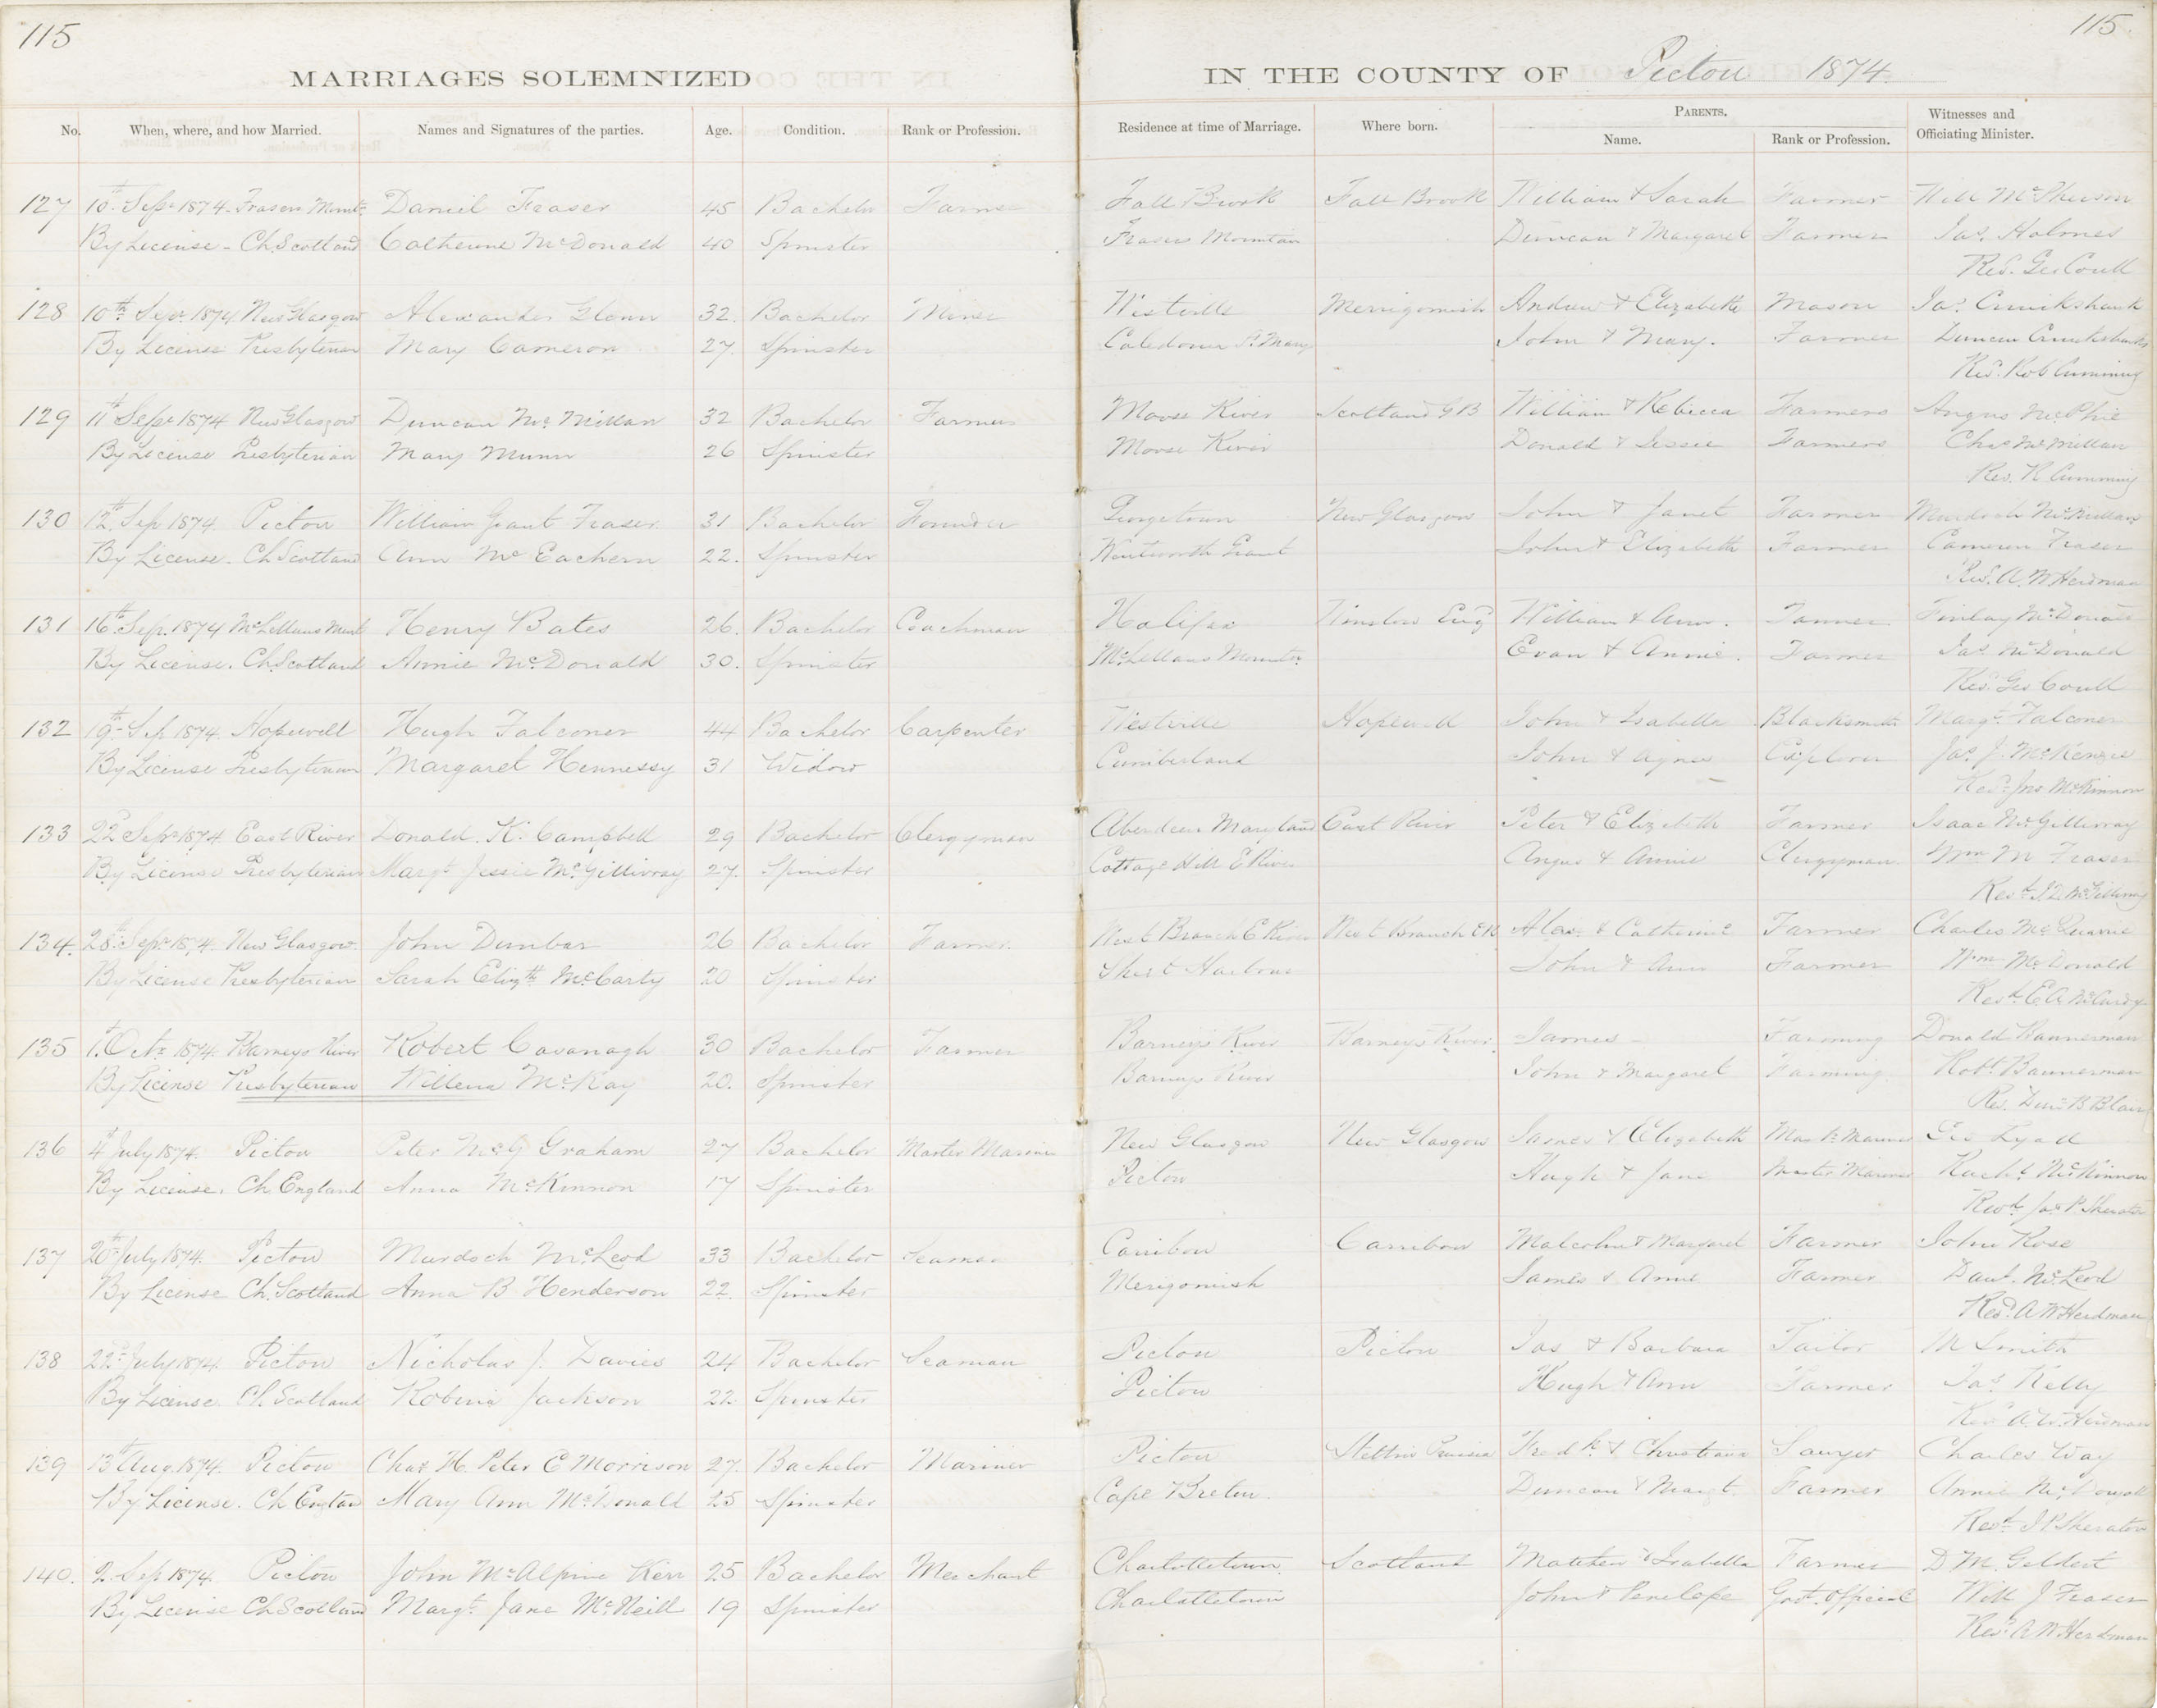 115 115
MARRIAGES SOLEMNIZED IN THE COUNTY OF Pictou 1874.
No. When, where, and how Married. Names and Signatures of the parties. Age. Condition. Rank or Profession. Residence at time of Marriage. Where born. PARENTS. Name. Rank or Profession. Witnesses and Officiating Minister.
127 10th Sepr 1874. Frasers Mount. Daniel Fraser 45 Bachelor Farmer Fall Brook Fall Brook William & Sarah Farmer Will McPherson
By License - Ch. Scotland Catherine McDonald 40 Spinster Frasers Mountain Duncan & Margaret Farmer Jas. Holmes
Revd. Geo Coull
128 10th Sepr. 1874 New Glasgow Alexander Glenn 32. Bachelor Miner Westville Merrigomish Andrew & Elizabeth Mason Jas Cruikshank
By License Presbyterian Mary Cameron 27. Spinster Caledonia St. Mary John & Mary. Farmer Duncan Cruikshanks
Revd. Rob Cumming
129 11th Sepr 1874 New Glasgow Duncan McMillan 32 Bachelor Farmer Moose River Scotland G B William & Rebecca Farmers Angus McPhie
By License Presbyterian Mary Munn 26 Spinster Moose River Donald & Jessie Farmers Chas McMillan
Rev. R Cumming
130 12th Sep 1874 Pictou William Grant Fraser 31 Bachelor Founder Georgetown New Glasgow John & Janet Farmer Murdoch McMillan
By License. Ch Scotland Ann McEachern 22. Spinster Wentworth Grant John & Elizabeth Farmer Cameron Fraser
Revd. A. W Herdman
131 16th Sep. 1874 McLellans Mount Henry Bates 26. Bachelor Coachman Halifax Winslow Eng William & Ann. Tanner Finlay McDonald
By License. Ch. Scotland Annie McDonald 30. Spinster McLellans Mountn. Evan & Annie. Farmer Jas McDonald
Revd. Geo Coull
132 19th Sep 1874. Hopewell Hugh Falconer 44 Bachelor Carpenter Westville Hopewell John & Isabella Blacksmith Margt. Falconer
By License Presbyterian Margaret Hennessy 31 Widow Cumberland John & Agnes Jas. J. McKenzie
Revd. Jno McKinnon
133 22d Sepr 1874. East River Donald. K. Campbell 29 Bachelor Clergyman Aberdeen Maryland East River Peter & Elizabeth Farmer Isaac McGillivray
By License Presbyterian Margt Jessie McGillivray 27. Spinster Cottage Hill E River Angus & Annie Clergyman Wm M Fraser
Revd. J. D McGillivray
134. 28th Sepr 1874. New Glasgow. John Dunbar 26 Bachelor Farmer. West Branch E River West Branch E R Alex. & Catherine Farmer Charles McQuarrie
By License Presbyterian Sarah Elizth McCarty 20 Spinster Sheet Harbour John & Ann Farmer Wm McDonald
Revd. E A McCurdy
135 1st Octr 1874. Barneys River Robert Cavanagh 30 Bachelor Farmer Barneys River Barneys River. James - Farming Donald Bannerman
By License Presbyterian Willena McKay 20. Spinster Barneys River John & Margaret Farming. Robt Bannerman
Rev. Dun B Blair
136 4th July 1874. Pictou Peter McG Graham 27 Bachelor Master Mariner New Glasgow New Glasgow James & Elizabeth Master Mariner Geo Lyall
By License. Ch. England Anna McKinnon 17 Spinster Pictou Hugh & Jane Master Mariner Rachl. McKinnon
Revd. Jas P Sheraton
137 20th July 1874. Pictou Murdoch McLeod 33 Bachelor Seaman Caribou Caribou Malcolm & Margaret Farmer John Rose
By License Ch. Scotland Anna B Henderson 22. Spinster Merigomish James & Anne Farmer Danl. McLeod
Revd. A W Herdman
138 22d July 1874. Pictou Nicholas J. Davies 24 Bachelor Seaman Pictou Pictou Jas & Barbara Tailor M Smith
By License Ch. Scotland Robina Jackson 22. Spinster Pictou Hugh & Ann Farmer Jas. Kelly
Revd. A. W. Herdman
139 13th Aug. 1874. Pictou Chas H. Peter C Morrison 27. Bachelor Mariner Pictou Stettin Prussia Fredk. & Christiana Sawyer Charles Way
By License. Ch England Mary Ann McDonald 25 Spinster Cape Breton. Duncan & Margt. Farmer Annie McDougall
Revd. J P Sheraton
140. 2 Sep 1874. Pictou John McAlpine Kerr 25 Bachelor Merchant Charlottetown. Scotland Matthew & Isabella Farmer D M. Geldert
By License Ch Scotland Margt. Jane McNeill 19 Spinster Charlottetown John & Penelope Govt. Official Will J Fraser
Revd. A W Herdman